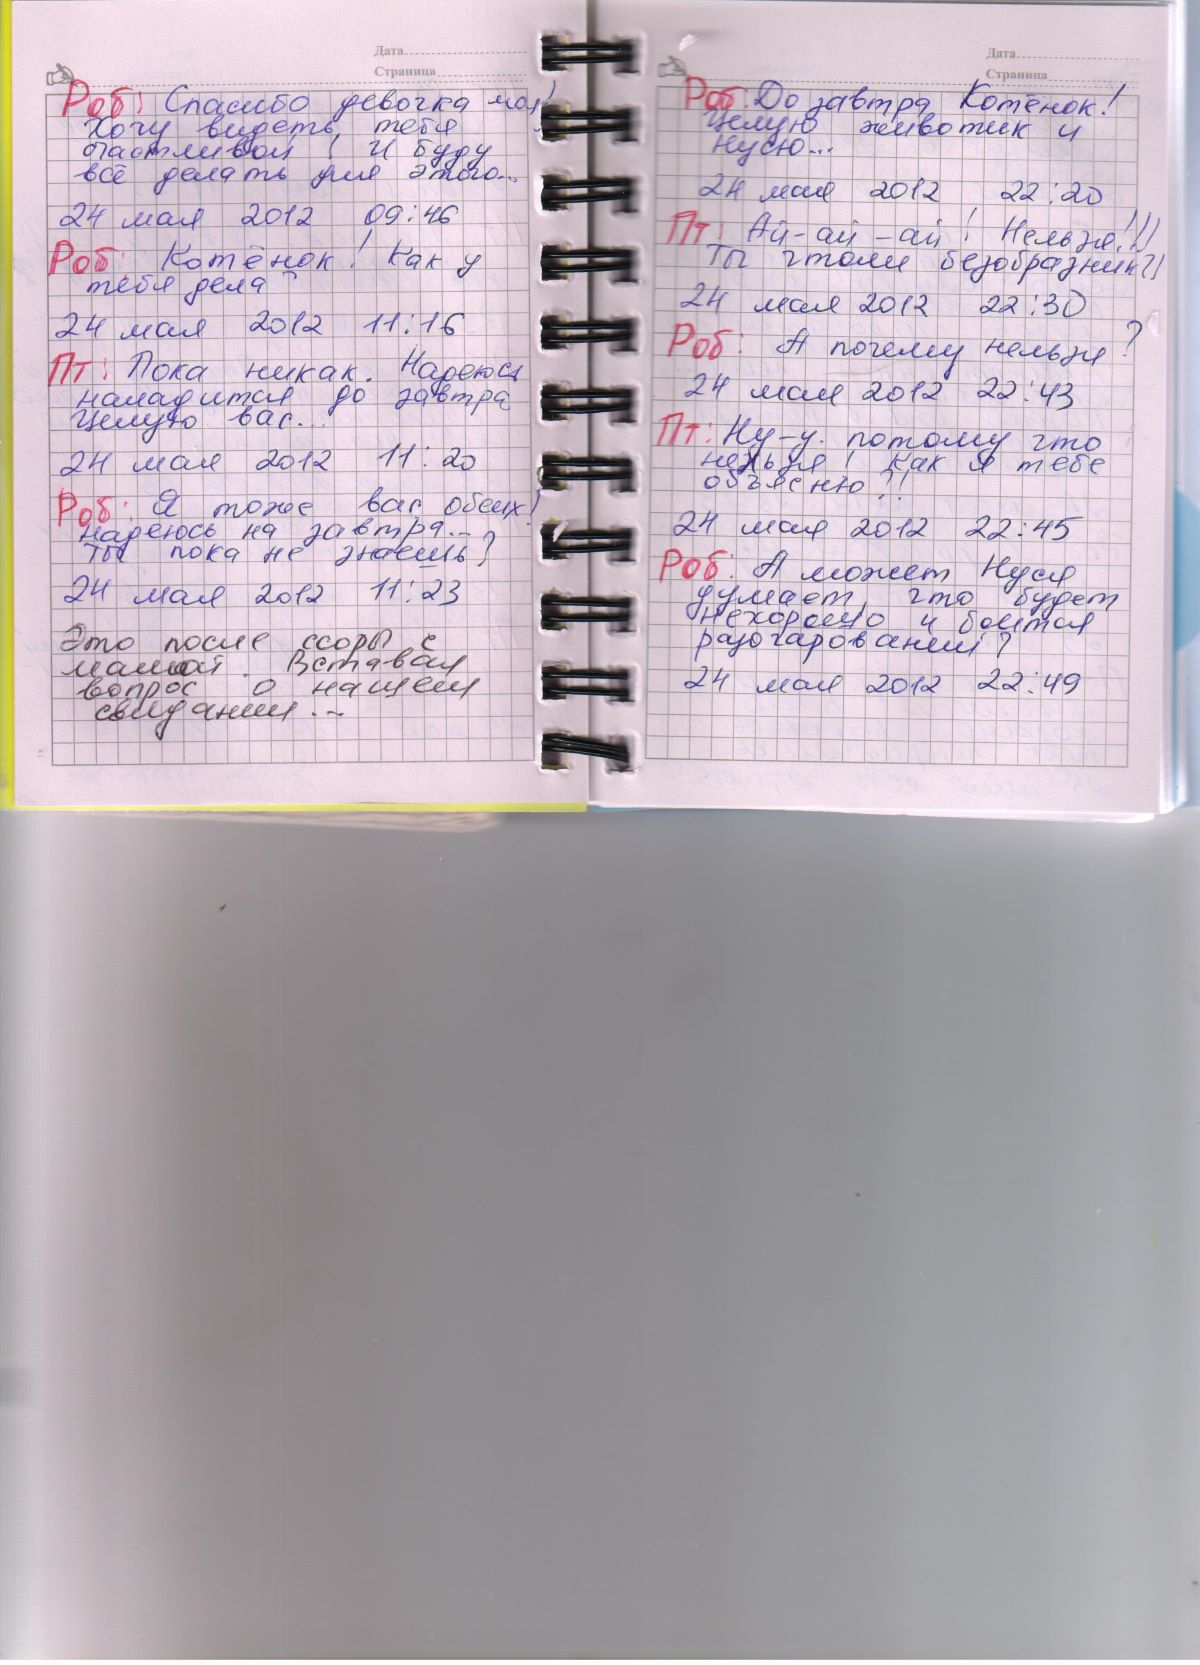 Дата
Страница
Роб: Спасибо девочка моя!
Хочу видеть тебя
счастливой! И буду
всё делать для этого...
24 мая 2012 09:46
Роб: Котёнок! Как у
тебя дела?
24 мая 2012 11:16
Пт: Пока никак. Надеюсь
наладится до завтра
Целую вас...
24 мая 2012 11:20
Роб: Я тоже вас обеих!
надеюсь на завтра...
Ты пока не знаешь?
24 мая 2012 11:23
Это после ссоры с
мамой. Вставал
вопрос о нашем
свидании...
Дата
Страница
Роб: До завтра Котёнок!
Целую животик и
Нусю...
24 мая 2012 22:20
Пт: Ай-ай-ай! Нельзя!!!
Ты чтоли безобразник?!
24 мая 2012 22:30
Роб: А почему нельзя?
24 мая 2012 22:43
Пт: Ну-у. потому что
нельзя! Как я тебе
объясню?!
24 мая 2012 22:45
Роб: А может Нуся
думает, что будет
нехорошо и боится
разочарований?
24 мая 2012 22:49